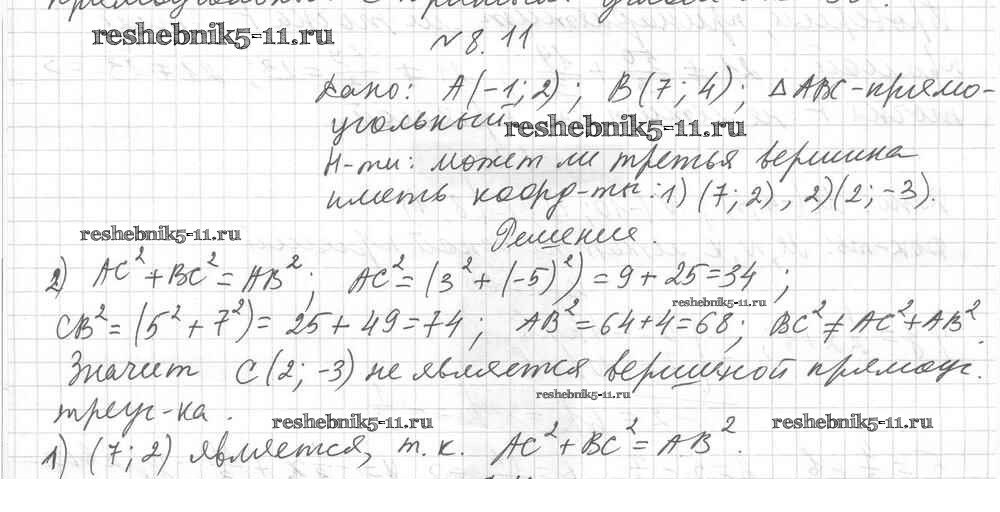 прямоугольный с прямым углом
reshebnik5-11.ru
№ 8.11
Дано: A(-1; 2); B(7; 4); △ABC - прямо-
угольный reshebnik5-11.ru
Н-ти: может ли третья вершина
иметь коорд-ты: 1) (7; 2), 2) (2; -3).
reshebnik5-11.ru
Решение.
2) AC² + BC² = AB²; AC² = (3² + (-5)²) = 9 + 25 = 34;
reshebnik5-11.ru
CB² = (5² + 7²) = 25 + 49 = 74; AB² = 64 + 4 = 68; BC² ≠ AC² + AB².
Значит C(2; -3) не является вершиной прямоуг.
reshebnik5-11.ru
треуг-ка.
reshebnik5-11.ru reshebnik5-11.ru
1) (7; 2) является, т.к. AC² + BC² = AB².